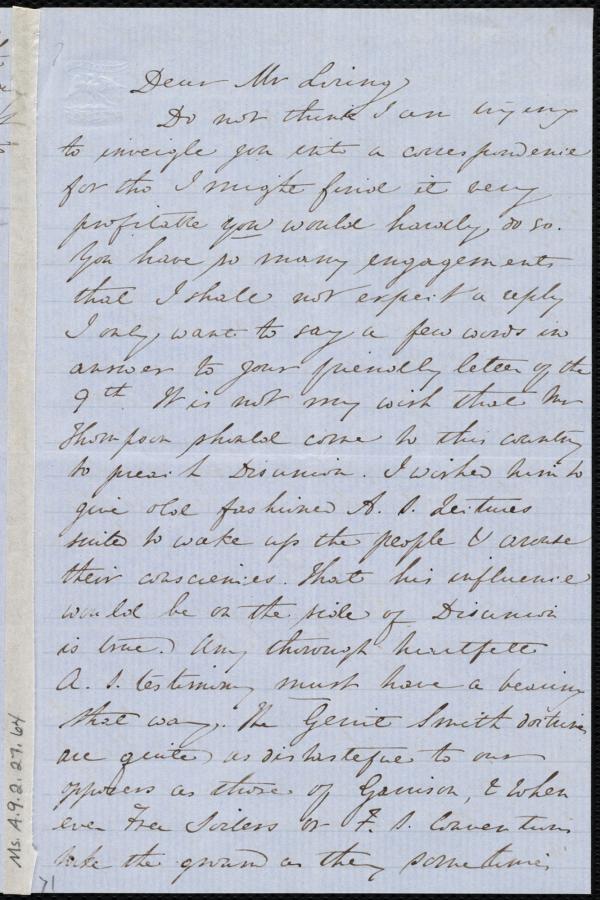 Dear Mr Loring,
Do not think I am trying
to inveigle you into a correspondence
for tho I might find it very
profitable you would hardly do so.
You have so many engagements
that I shall not expect a reply
I only want to say a few words in
answer to your friendly letter of the
9th. It is not my wish that Mr
Thompson should come to this country
to preach Disunion. I wished him to
give old fashioned A. S. Lectures
suited to wake up the people & arouse
their consciences. That his influence
would be on the side of Disunion
is true. Any thorough heartfelt
A. S. testimony must have a bearing
that way. The Gerrit Smith doctrines
are quite as distasteful to our
opposers as those of Garrison, & when
ever Free Soilers or F. S. Conventions
take the ground as they sometimes
Ms. A.9.2.27.64
71